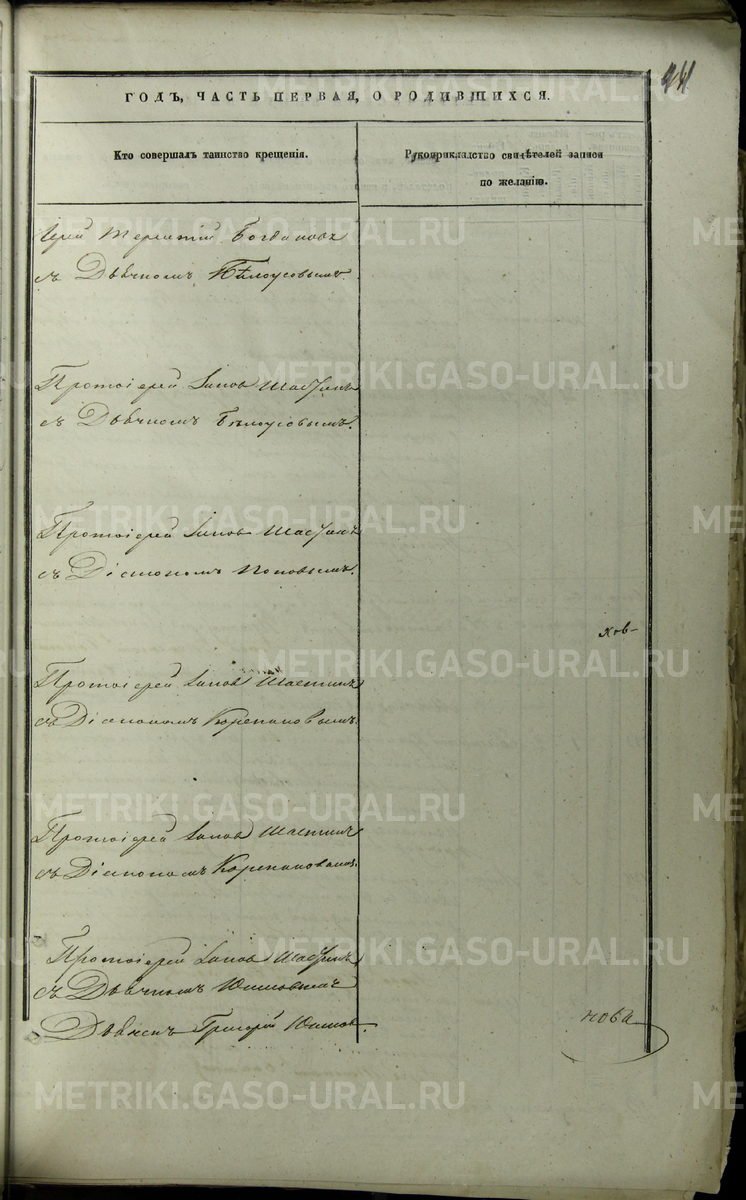 ГОДЪ, ЧАСТЬ ПЕРВАЯ, О РОДИВШИХСЯ.
Кто совершалъ таинство крещенія.
Рукоприкладство свидѣтелей записи
по желанію.
Іерей Терентій Богдановъ
съ Дьячкомъ Бѣлоусовымъ.
Протоіерей Іаковъ
съ Дьячкомъ Бѣлоусовымъ.
Протоіерей Іаковъ
съ Діакономъ Поповымъ.
ков-
Протоіерей Іаковъ
съ Діакономъ Корепановымъ.
Протоіерей Іаковъ
съ Діакономъ Корепановымъ.
Протоіерей Іаковъ
съ Дьячкомъ
Дьячекъ Григорій
нова
METRIKI.GASO-URAL.RU